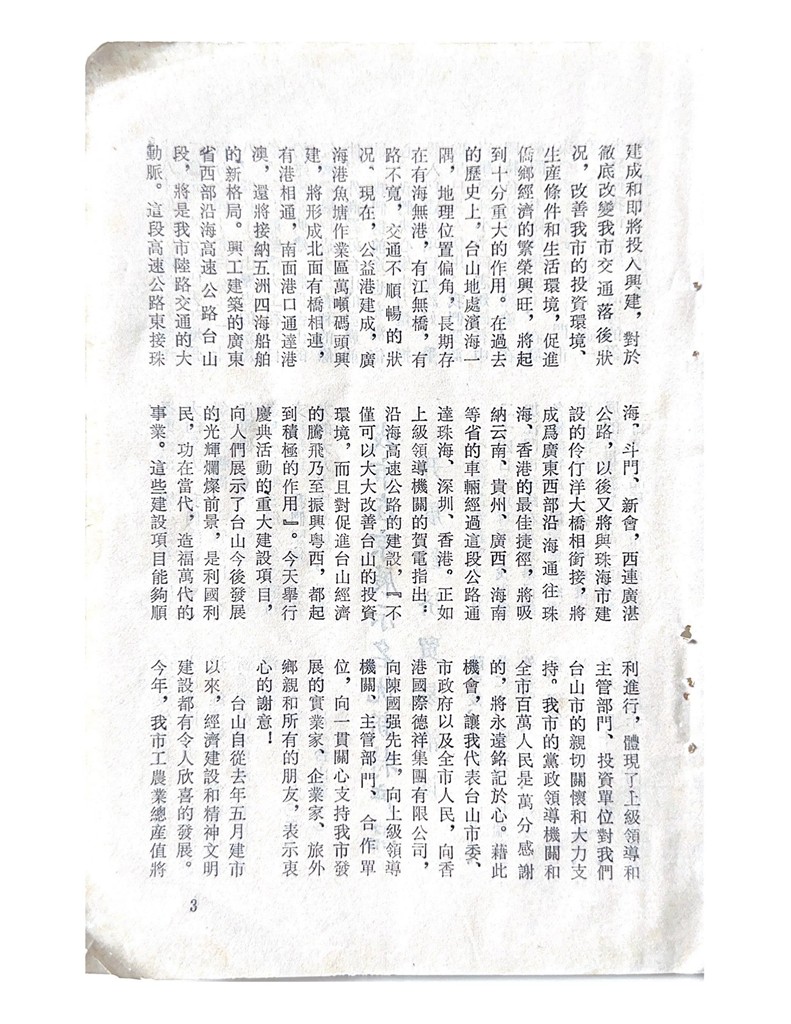 建成和即將投入興建，對於
徹底改變我市交通落後狀
況，改善我市的投資環境、
生産條件和生活環境，促進
僑鄉經濟的繁榮興旺，將起
到十分重大的作用。在過去
的歷史上，台山地處濱海一
隅，地理位置偏角，長期存
在有海無港，有江無橋，有
路不寬，交通不順暢的狀
况、現在，公益港建成，廣
海港魚塘作業區萬噸碼頭興
建，將形成北面有橋相連，
有港相通，南面港口通達港
澳，還將接納五洲四海船舶
的新格局。興工建築的廣東
省西部沿海高速公路台山
段，將是我市陸路交通的大
動脈。這段高速公路東接珠
海、斗門、新會，西連廣湛
公路，以後又將興珠海市建
設的伶仃洋大橋相銜接，將
成爲廣東西部沿海通往珠
海、香港的最佳捷徑，將吸
納云南、貴州、廣西、海南
等省的車輛經過這段公路通
達珠海、深圳、香港。正如
上級領導機關的賀電指出：
沿海高速公路的建設，『不
僅可以大大改善台山的投資
環境，而且對促進台山經濟
的騰飛乃至振興粤西，都起
到積極的作用』。今天舉行
慶典活動的重大建設項目，
向人們展示了台山今後發展
的光輝爛燦前景，是利國利
民，功在當代，造福萬代的
事業。這些建設項目能夠順
利進行，體現了上級領導和
主管部門、投資單位對我們
台山市的親切關懷和大力支
持。我市的黨政領導機關和
全市百萬人民是萬分感謝
的，將永遠銘記於心。藉此
機會，讓我代表台山市委、
市政府以及全市人民，向香
港國際德祥集團有限公司，
向陳國强先生，向上級領導
機關、主管部門、合作單
位，向一貫關心支持我市發
展的實業家、企業家、旅外
鄉親和所有的朋友，表示衷
心的謝意！
台山自從去年五月建市
以來，經濟建設和精神文明
建設都有令人欣喜的發展。
今年，我市工農業總産值將
3